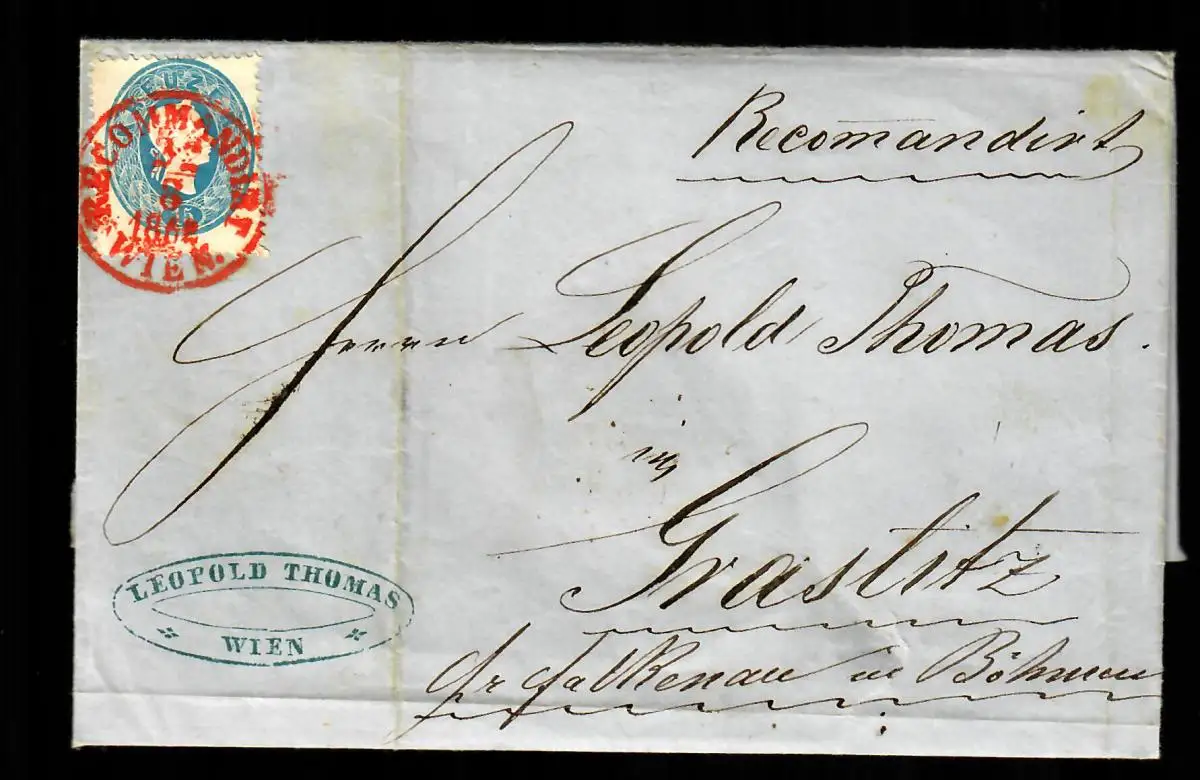 KREUZER
15
RECOMMANDIRT
8
1862
WIEN.
Recom̄andirt
Herrn Leopold Thomas.
in
Graslitz
pr Falkenau in Böhmen
LEOPOLD THOMAS
WIEN